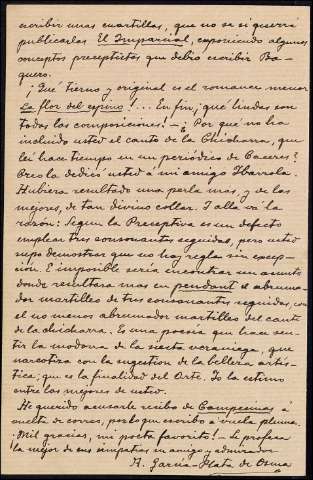 escribir unas cuartillas, que no se si querrá
publicarlas El Imparcial, exponiendo algunos
conceptos preceptistas que debió escribir Ba-
quero.
¡Qué tierno y original es el romance menor
La flor del espino!... En fin, ¡qué lindas son
todas las composiciones! — ¿Por qué no ha
incluido usted el canto de la Chicharra, que
leí hace tiempo en un periódico de Caceres?
Creo la dedicó usted á mi amigo Ibarrola.
Hubiera resultado una perla mas, y de las
mejores, de tan divino collar. Y alla va la
razón: Segun la Preceptiva es un defecto
emplear tres consonantes seguidas, pero usted
supo demostrar que no hay regla sin excep-
ción. E imposible sería encontrar un asunto
donde resultara mas en pendant el abruma-
dor martilleo de tres consonantes seguidas, con
el no menos abrumador martilleo del canto
de la chicharra. Es una poesía que hace sen-
tir la modorra de la siesta veraniega, que
narcotiza con la sugestion de la belleza artís-
tica; que es la finalidad del Arte. Yo la estimo
entre las mejores de usted.
He querido acusarle recibo de Campesinas á
vuelta de correo, por lo que escribo á vuela pluma.
¡Mil gracias, mi poeta favorito! — Le profesa
la mejor de sus simpatias su amigo y admirador
R. García-Plata de Osma